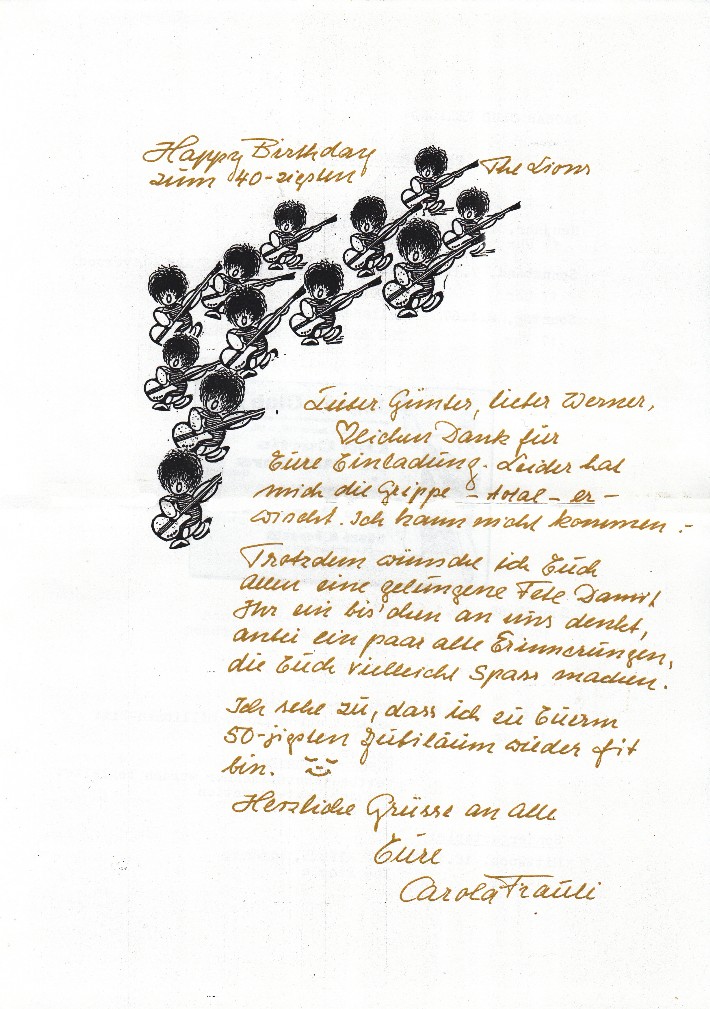 Happy Birthday
zum 40-zigsten
The Lions
Lieber Günter, lieber Werner,
♡lichen Dank für
Eure Einladung. Leider hat
mich die Grippe – total – er –
wischt. Ich kann nicht kommen.
Trotzdem wünsche ich Euch
allen eine gelungene Fete. Damit
Ihr ein bis'chen an uns denkt,
anbei ein paar alte Erinnerungen,
die Euch vielleicht Spass machen.
Ich sehe zu, dass ich zu Euerm
50-zigsten Jubiläum wieder fit
bin.
Herzliche Grüsse an alle
Eure
Carola